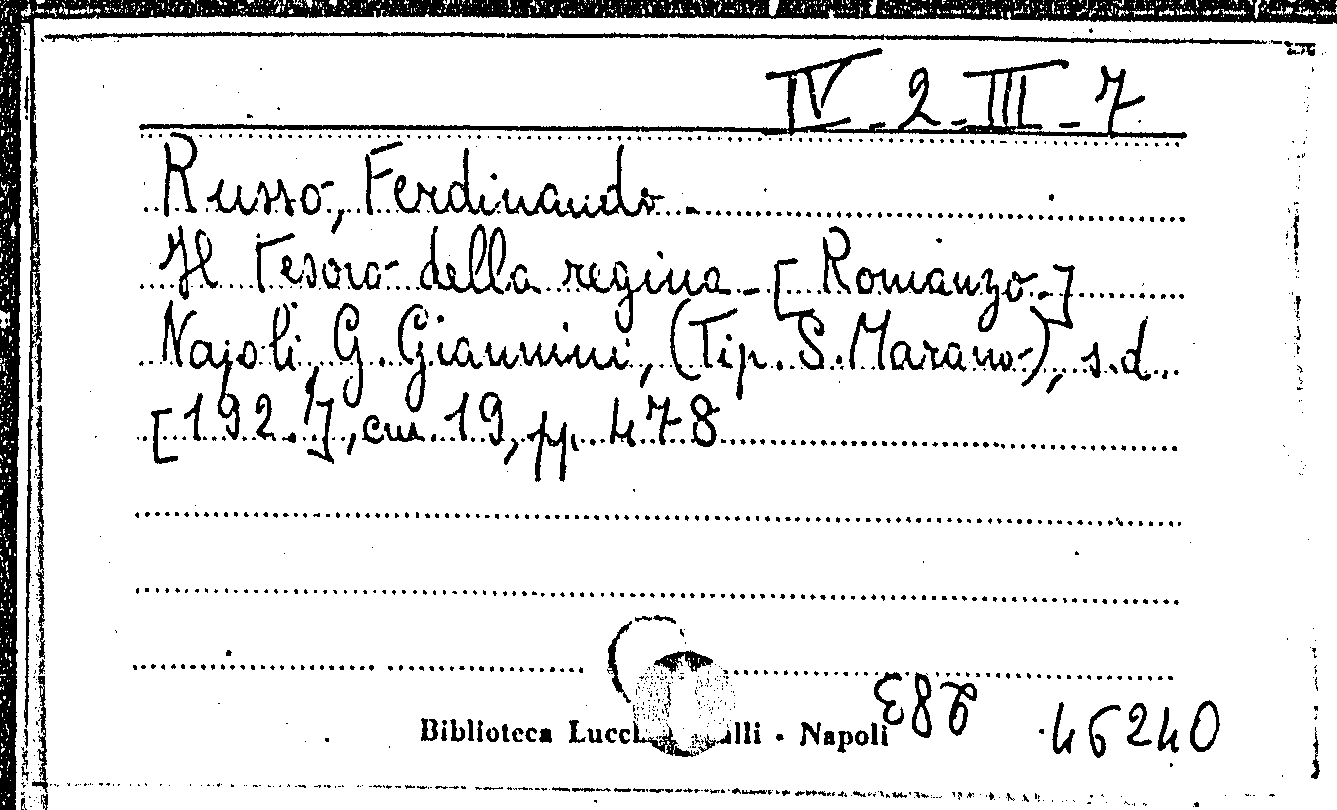 IV - 2 - III - 7
Russo, Ferdinando -
Il tesoro della regina - [Romanzo.]
Napoli, G. Giannini, (Tip. S. Marano), s.d.
[192.?], cm. 19, pp. 478
Biblioteca Lucch lli - Napoli
46240